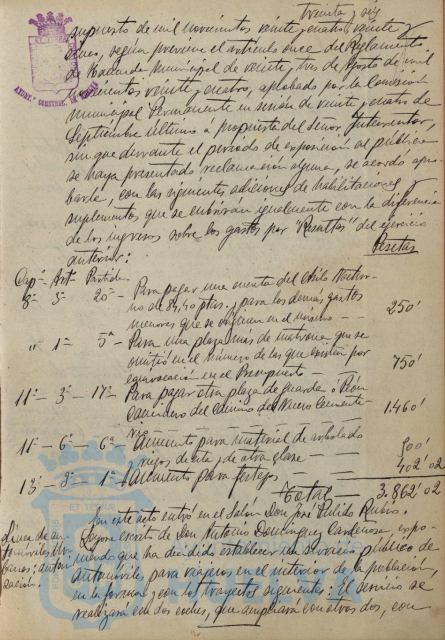 treinta y seis
supuesto de mil novecientos veinte y cuatro, veinte y
cinco, según previene el artículo once del Reglamento
de Hacienda Municipal de veinte y tres de Agosto de mil
novecientos veinte y cuatro, aprobado por la Comisión
Municipal Permanente en sesión de veinte y cuatro de
Septiembre último a propuesta del Señor Interventor,
sin que durante el período de exposición al público
se haya presentado reclamación alguna, se acordó apro-
barle, con las siguientes adiciones de habilitaciones y
suplementos que se cubrirán igualmente con la diferencia
de los ingresos sobre los gastos por "Resultas" del ejercicio
anterior:
Pesetas
Cap.º Art.º Partida
8º 5º 20ª Para pagar una cuenta del Asilo Noctur-
no de 84,40 ptas. y para los demás gastos
menores que se originen en el mismo — — 250'
" 1º 5ª Para una plaza más de matrona que se
omitió en el número de las que existían por
equivocación en el Presupuesto — 750'
11º — 3º — 17ª Para pagar otra plaza de Guarda o Peón
Caminero del Camino del Nuevo Cemente-
rio — 1.460'
11º — 6º — 6ª Aumento para material de arbolado
riego, de ita, y de otra clase — — 900'
13º — 3º — 1ª Aumento para festejos — — 402'02
Total — 3.862'02
En este acto entró en el Salón Don José Pulido Rubio.
Línea de au-
tomóviles ur-
banos: autori-
zación.
Leyose escrito de Don Antonio Domínguez Cardeñosa, expo-
niendo que ha decidido establecer un servicio público de
Automóviles para viajeros en el interior de la población,
en la forma y con los trayectos siguientes: El servicio se
realizará con dos coches, que ampliará con otros dos, con-